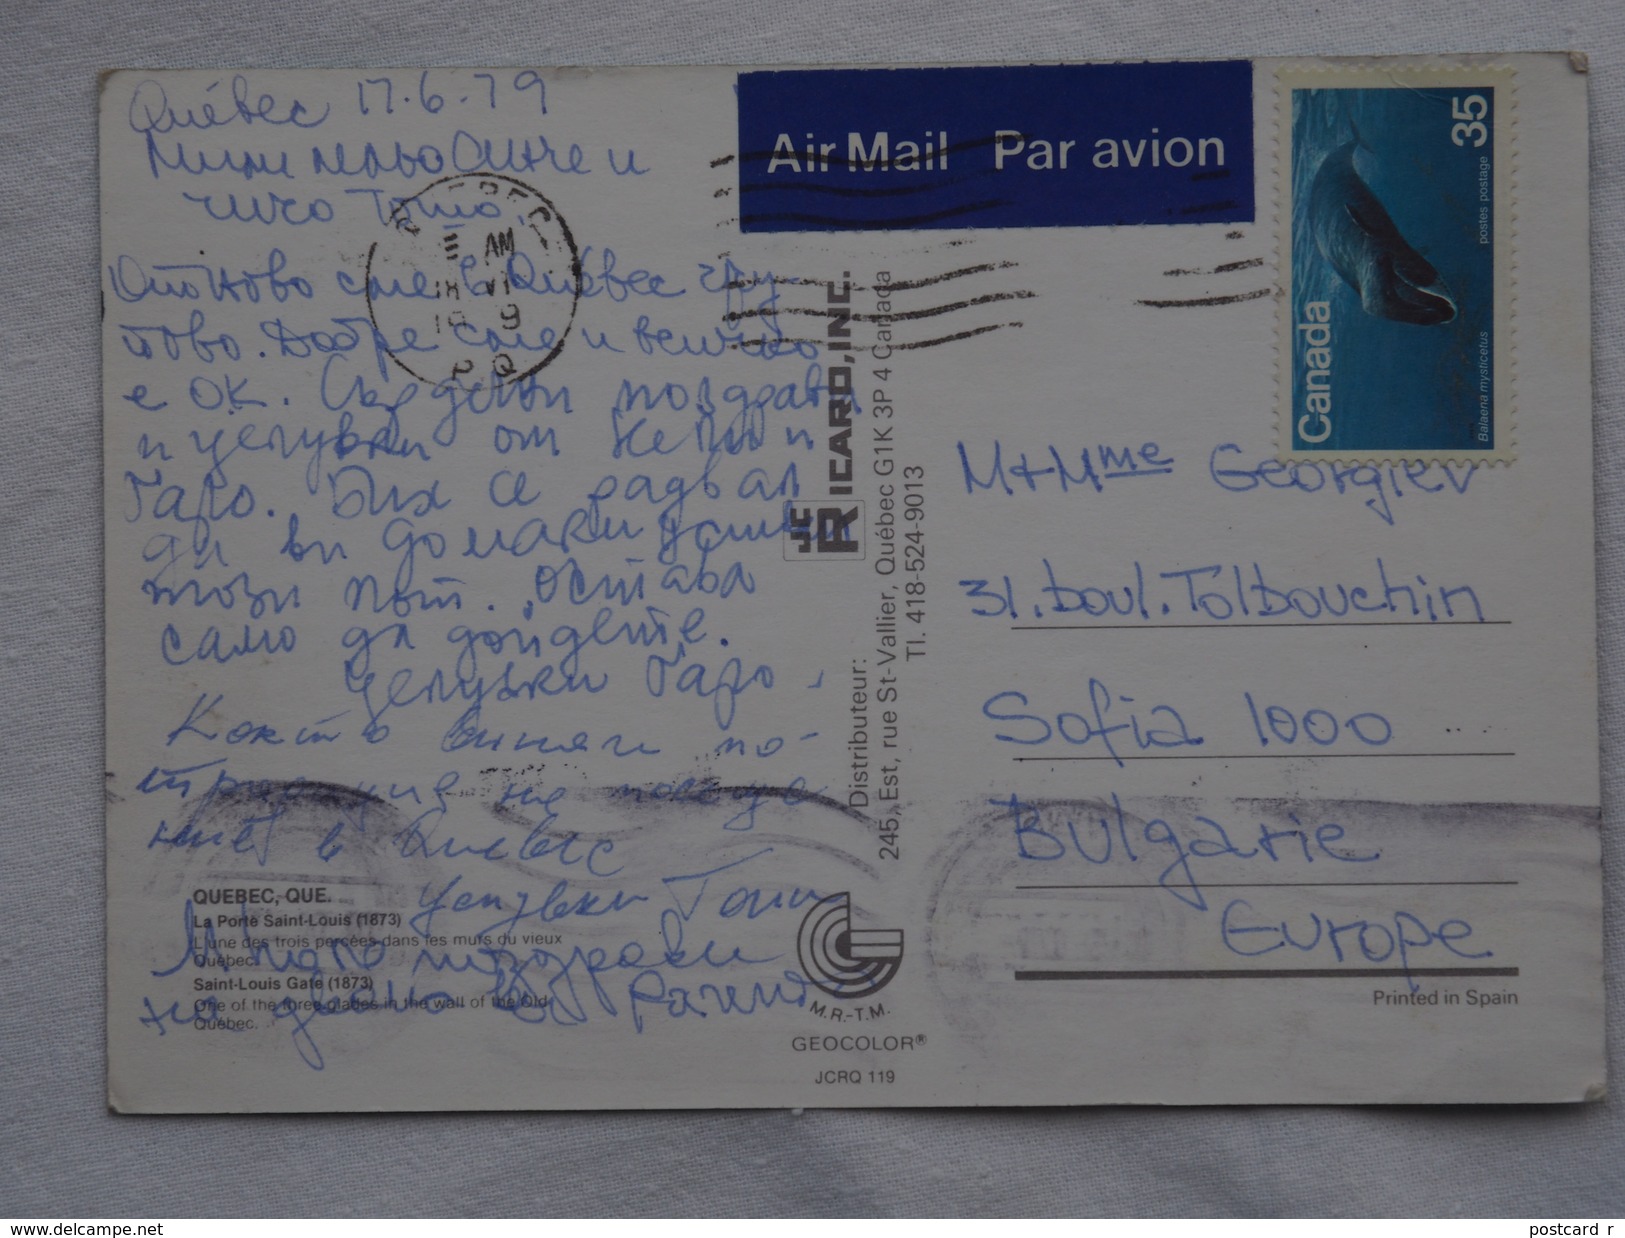 Québec 17.6.79
Мили лельо Сийче и
чичо Тошо,
Отново сме в Québec гру-
пово. Добре сме и всичко
е ОК. Сърдечни поздрави
и целувки от Кети и
Гаро. Бих се радвал
да ви домакинствам
този път. Остава
само да дойдете.
Целувки Гаро.
Както винаги по-
сле в Québec
Целувки Тони
Много поздрави
на двама ви
Air Mail Par avion
Canada
35
postes postage
Balaena mysticetus
M+Mme Georgiev
31. boul. Tolbouchin
Sofia 1000
Bulgarie
Europe
Printed in Spain
JC RICARD, INC.
Distributeur:
245, Est, rue St-Vallier, Québec G1K 3P 4 Canada
Tl. 418-524-9013
QUEBEC, QUE.
La Porte Saint-Louis (1873)
L'une des trois percées dans les murs du vieux
Québec.
Saint-Louis Gate (1873)
One of the three glades in the wall of the Old
Québec.
M.R.-T.M.
GEOCOLOR®
JCRQ 119
www.delcampe.net
postcard_r